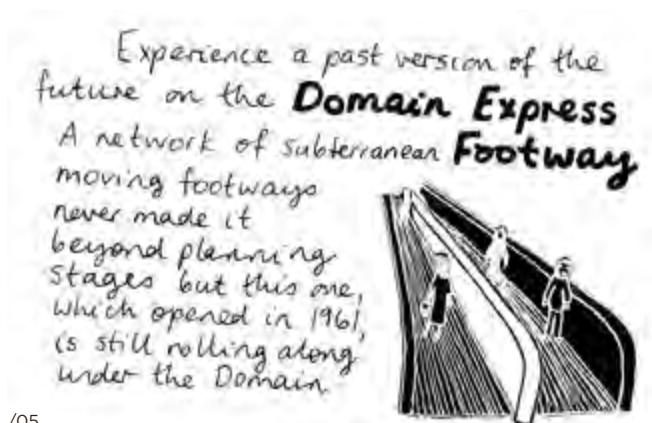 Experience a past version of the
future on the Domain Express
A network of subterranean Footway
moving footways
never made it
beyond planning
stages but this one,
which opened in 1961,
is still rolling along
under the Domain
/05